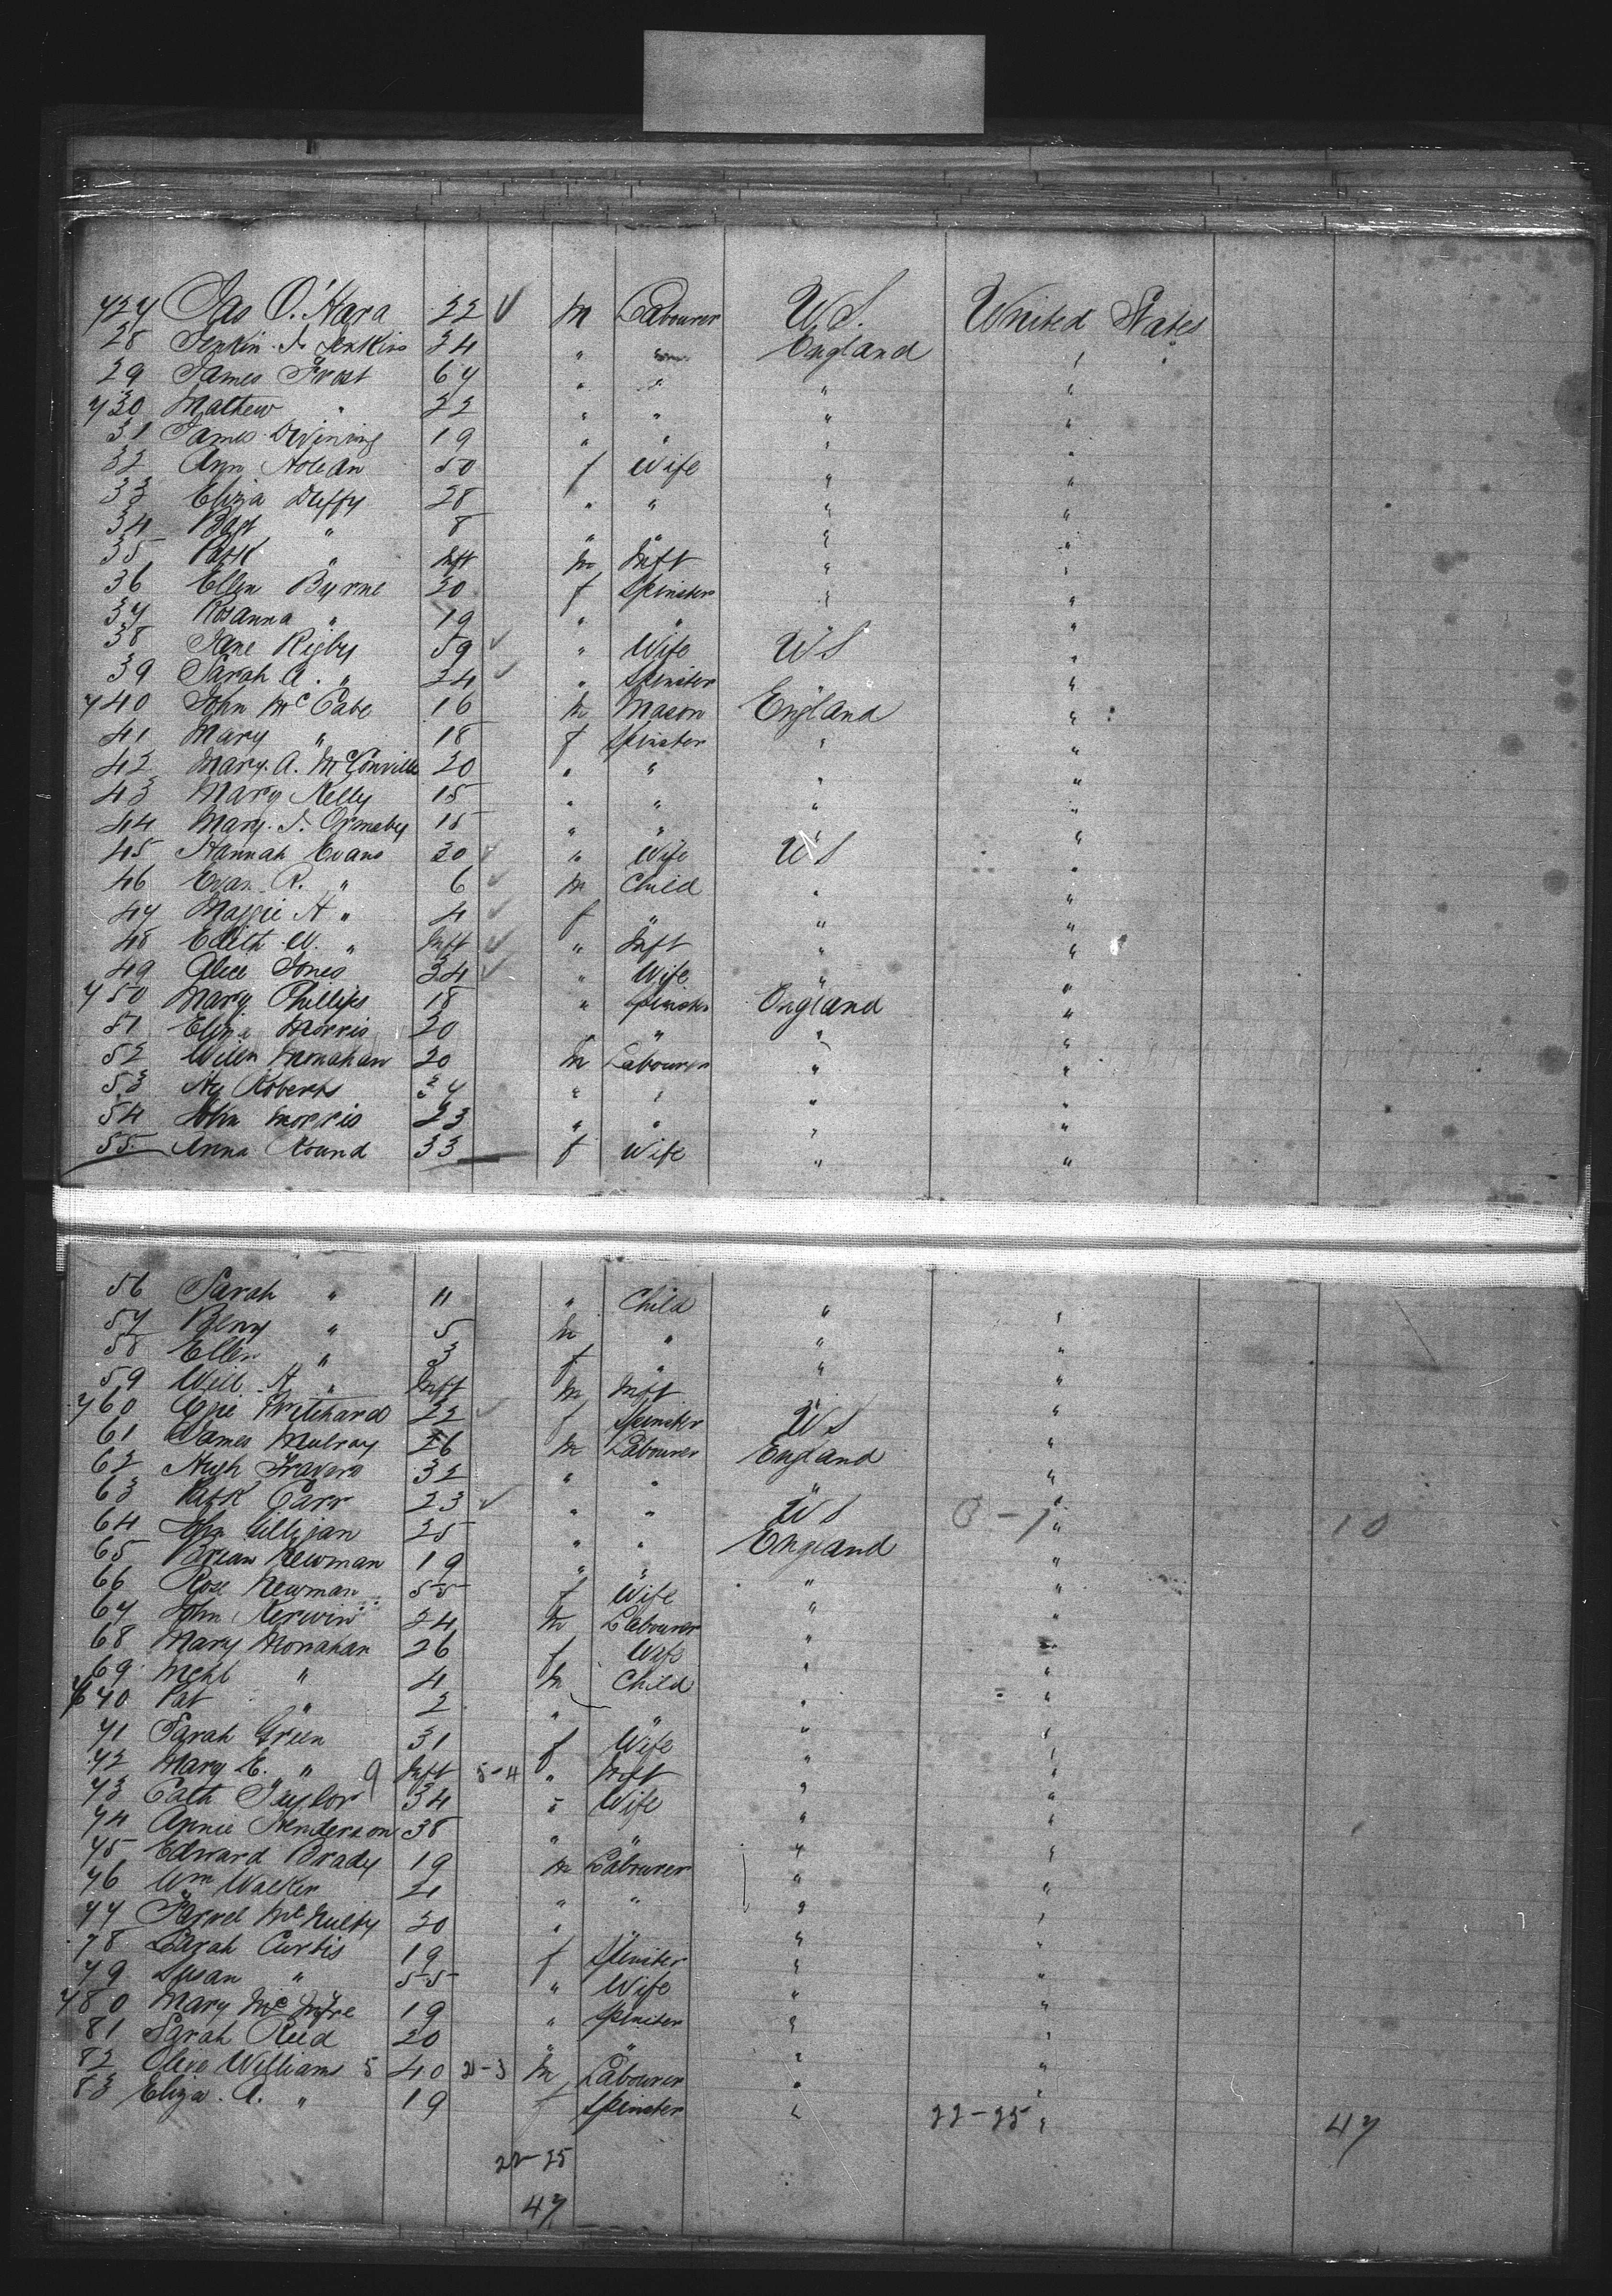 727 Jas O'Hara 22 ✓ m Labourer U.S. United States
28 Jenkin J. Jenkins 24 " " England "
29 James Frost 67 " " " "
730 Mathew " 22 " " " "
31 James Dvining 19 " " " "
32 Ann Nolean 50 f Wife " "
33 Eliza Duffy 28 " " " "
34 " 8 " " " "
35 Patk " Inft m Inft " "
36 Ellen Byrne 20 f Spinster " "
37 Rosanna " 19 " " " "
38 Jane Rigby 59 ✓ " Wife US "
39 Sarah A. " 24 ✓ " Spinster "
740 John McCabe 16 m Mason England "
41 Mary " 18 f Spinster " "
42 Mary A. McConville 20 " " " "
43 Mary Kelly 15 " " " "
44 Mary J. Ormsby 18 " " " "
45 Hannah Evans 30 ✓ " Wife US "
46 Evan R. " 6 ✓ m Child " "
47 Maggie H " 4 ✓ f " " "
48 Edith W. " Inft ✓ " Inft " "
49 Alice Jones 34 ✓ " Wife " "
750 Mary Phillips 18 " Spinster England "
51 Eliza Morris 20 " " " "
52 Willm Monahan 20 m Labourer " "
53 Hy Roberts 27 " " " "
54 John Morris 23 " " " "
55 Anna Round 33 f Wife " "
56 Sarah " 11 " Child " "
57 Benj " 5 m " " "
58 Ellen " 3 f " " "
59 Will H " Inft m Inft " "
760 Pritchard 22 ✓ f Spinster US "
61 James Mulray 26 m Labourer England "
62 Hugh Travers 32 " " " "
63 Patk Carr 23 ✓ " " US " 10
64 John Gilligan 25 " " England "
65 Brian Newman 19 " " " "
66 Rose Newman 55 f Wife " "
67 John Kerwin 24 m Labourer " "
68 Mary Monahan 26 f Wife " "
69 Mchl " 4 m Child " "
770 Pat " 2 " " " "
71 Sarah Green 31 f Wife " "
72 Mary E. " 9 Inft 5-4 " Inft " "
73 Cath Taylor 34 " Wife " "
74 Annie Henderson 38 " " " "
75 Edward Brady 19 m Labourer " "
76 Wm Walker 21 " " " "
77 McNulty 20 " " " "
78 Sarah Curtis 19 f Spinster " "
79 Susan " 55 " Wife " "
780 Mary McIntyre 19 " Spinster " "
81 Sarah Reid 20 " " " "
82 Williams 5 40 2-3 m Labourer " "
83 Eliza A. " 19 f Spinster " 22-25 " 47
22-25
47